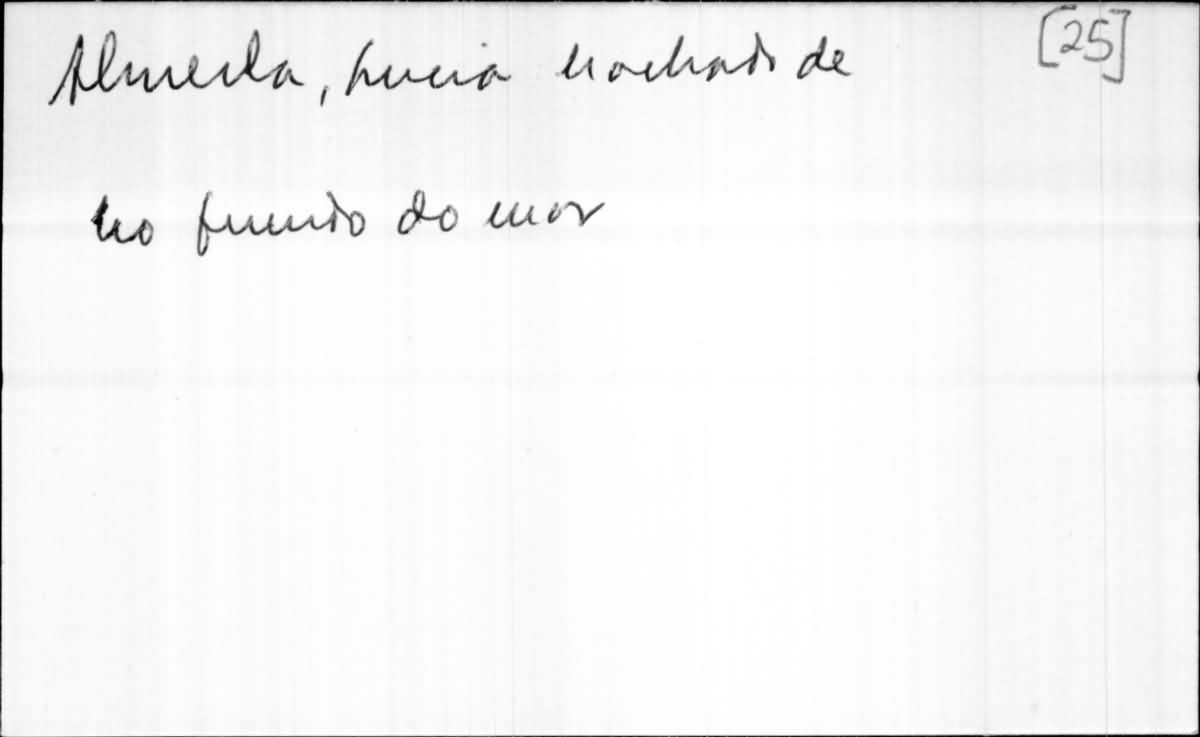 Almeida, Lucia Machado de [25]
No fundo do mar